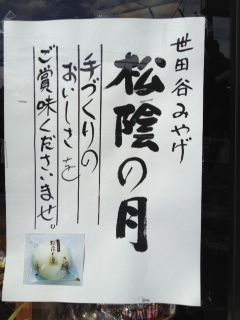 世田谷みやげ
松陰の月
手づくりの
おいしさを
ご賞味くださいませ。